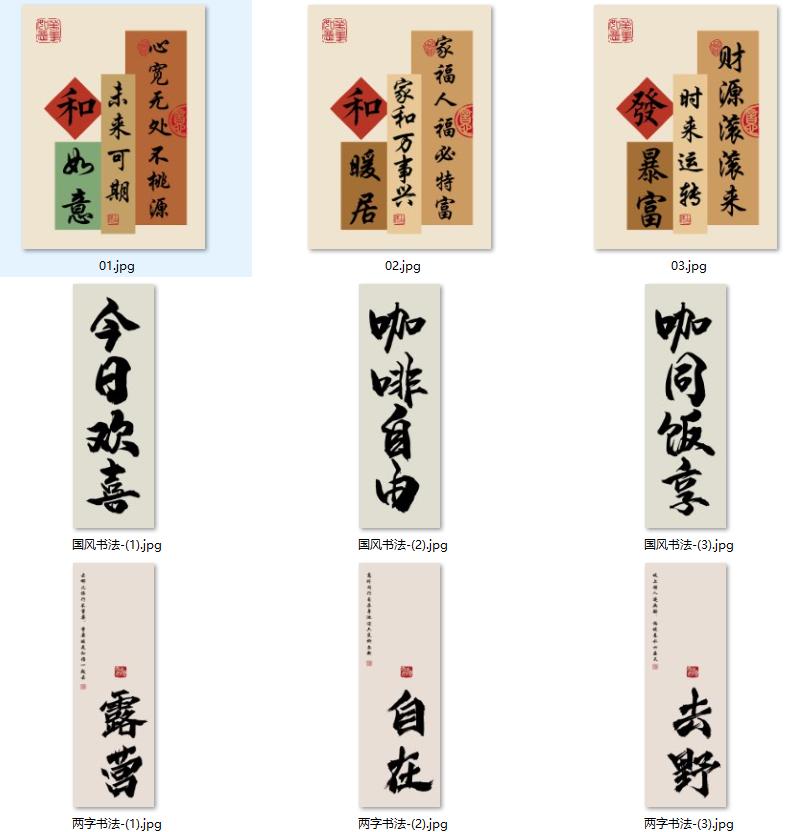 和
如意
未来可期
心宽无处不桃源
01.jpg
和
暖居
家和万事兴
家福人福必特富
02.jpg
發
暴富
时来运转
财源滚滚来
03.jpg
今日欢喜
国风书法-(1).jpg
咖啡自由
国风书法-(2).jpg
咖同饭享
国风书法-(3).jpg
露营
两字书法-(1).jpg
自在
两字书法-(2).jpg
去野
两字书法-(3).jpg